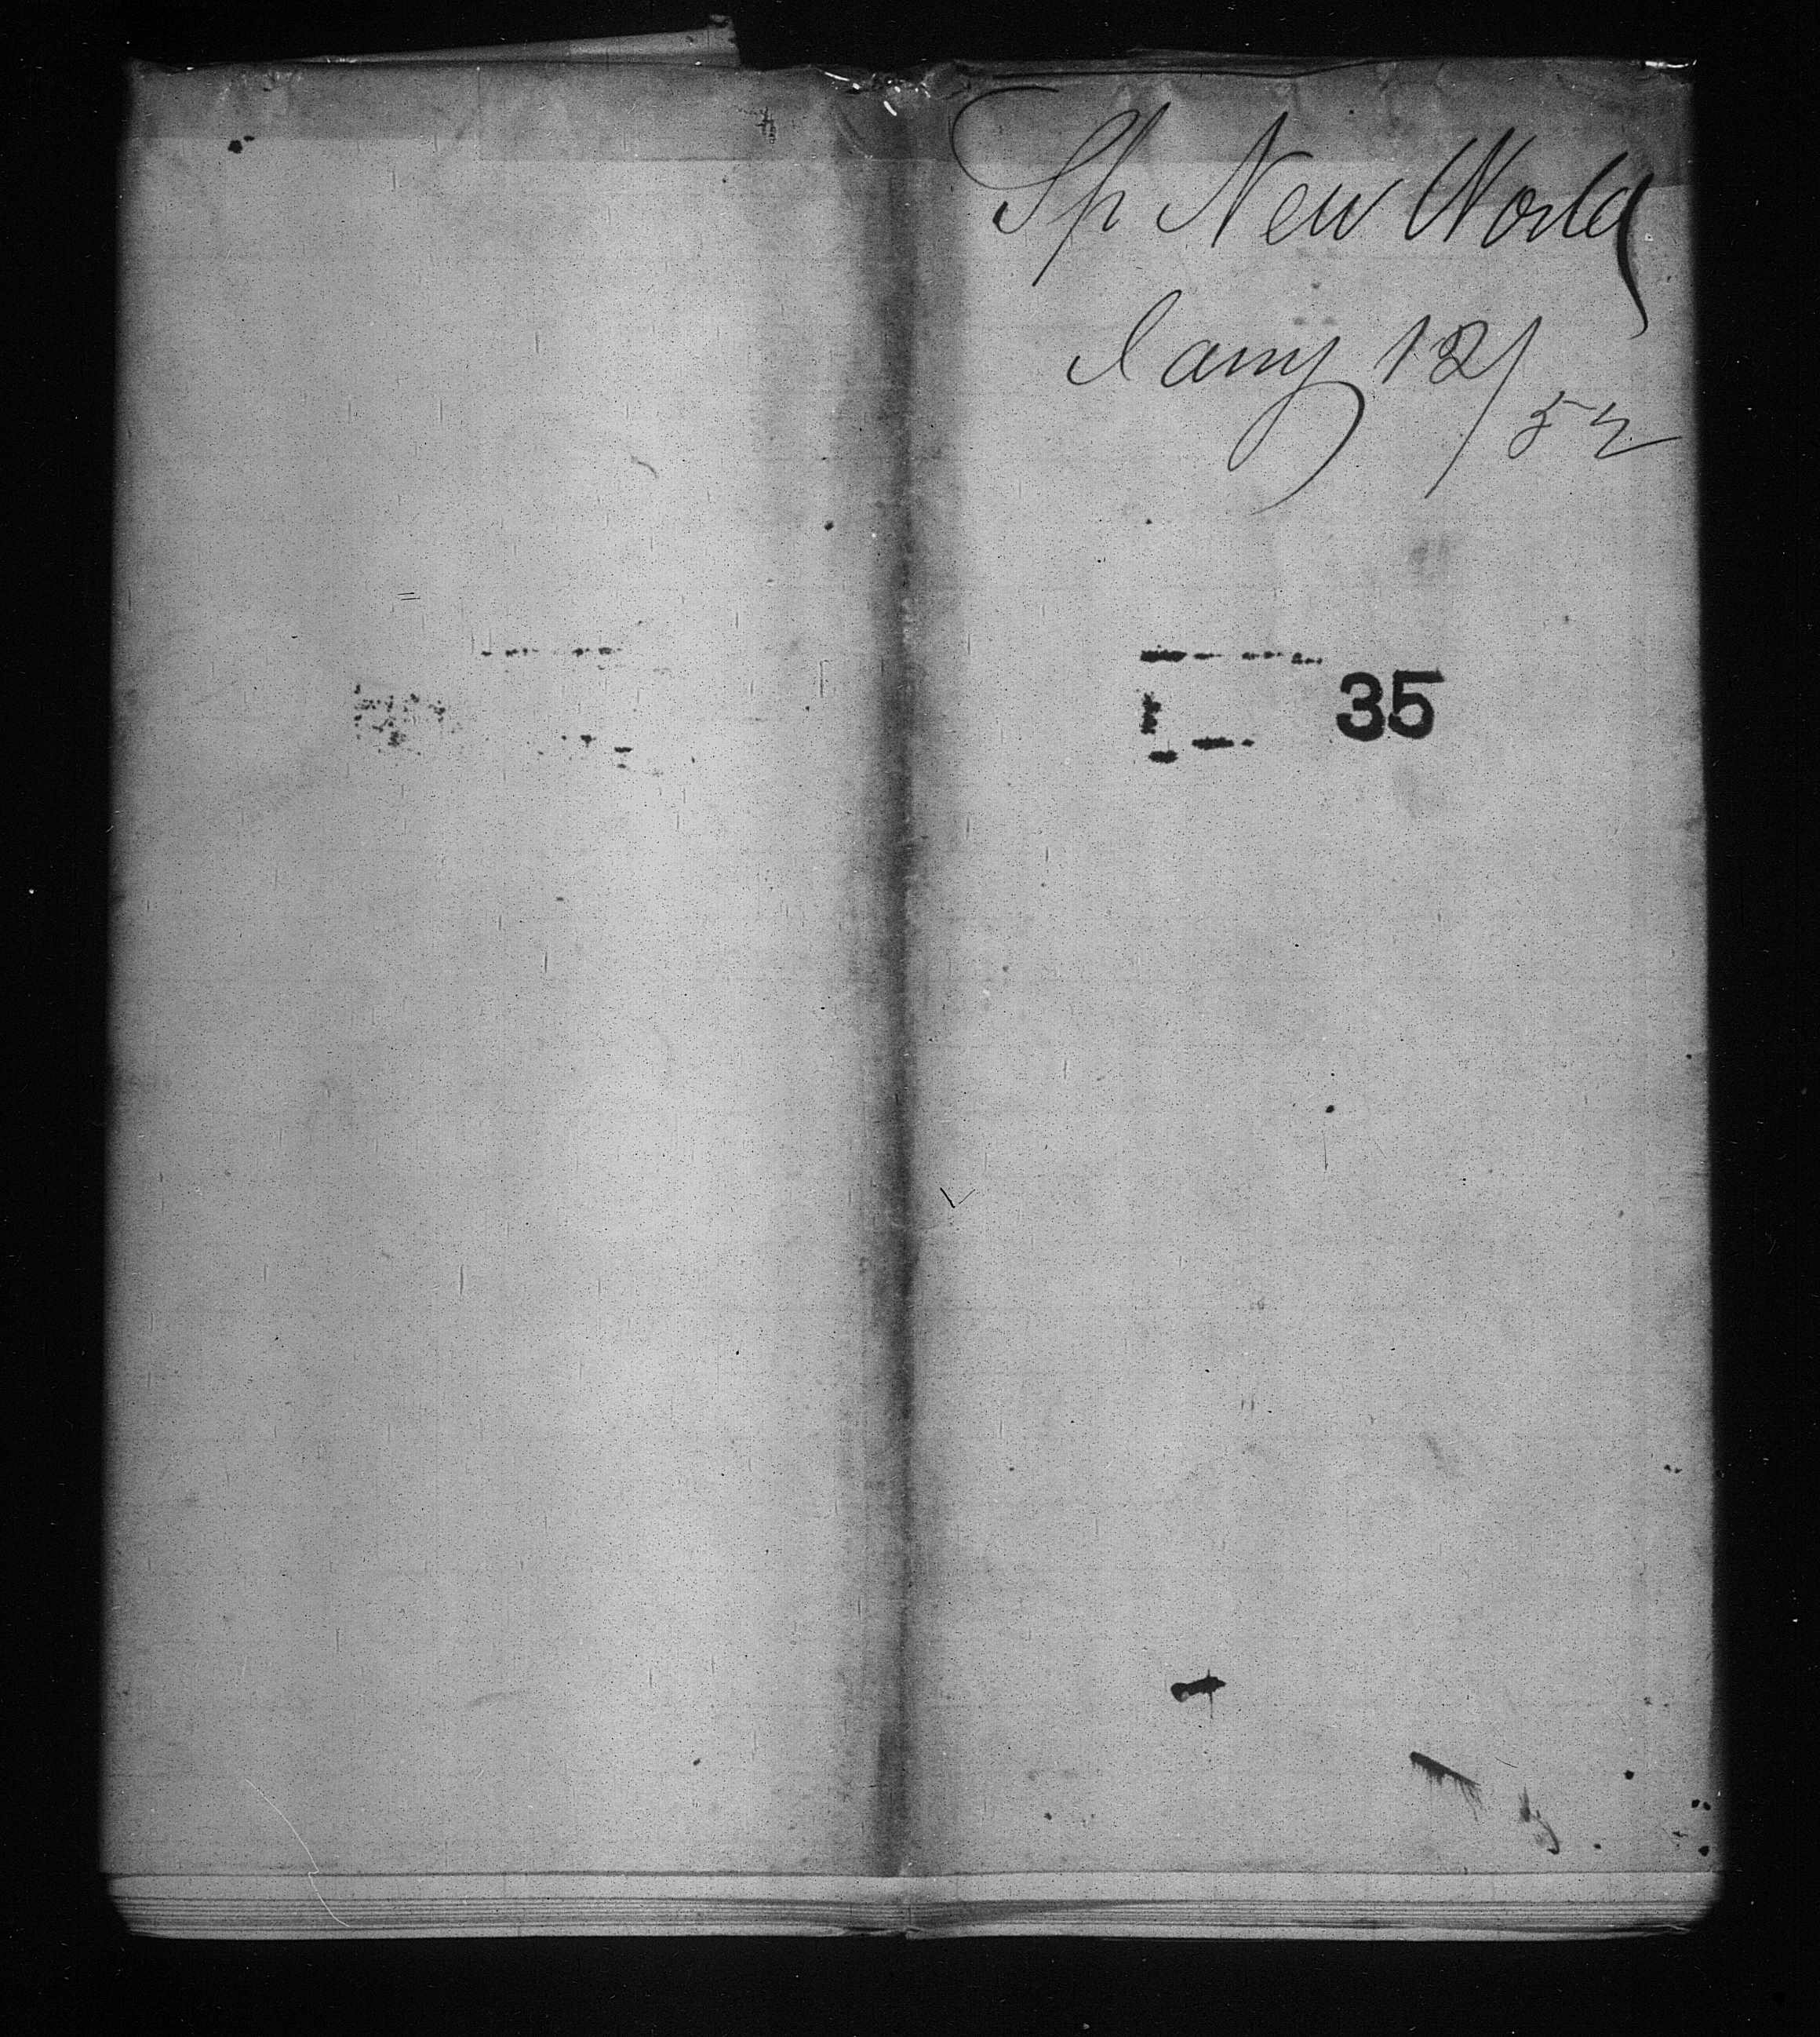 Sh New World
Jany 12/52
35